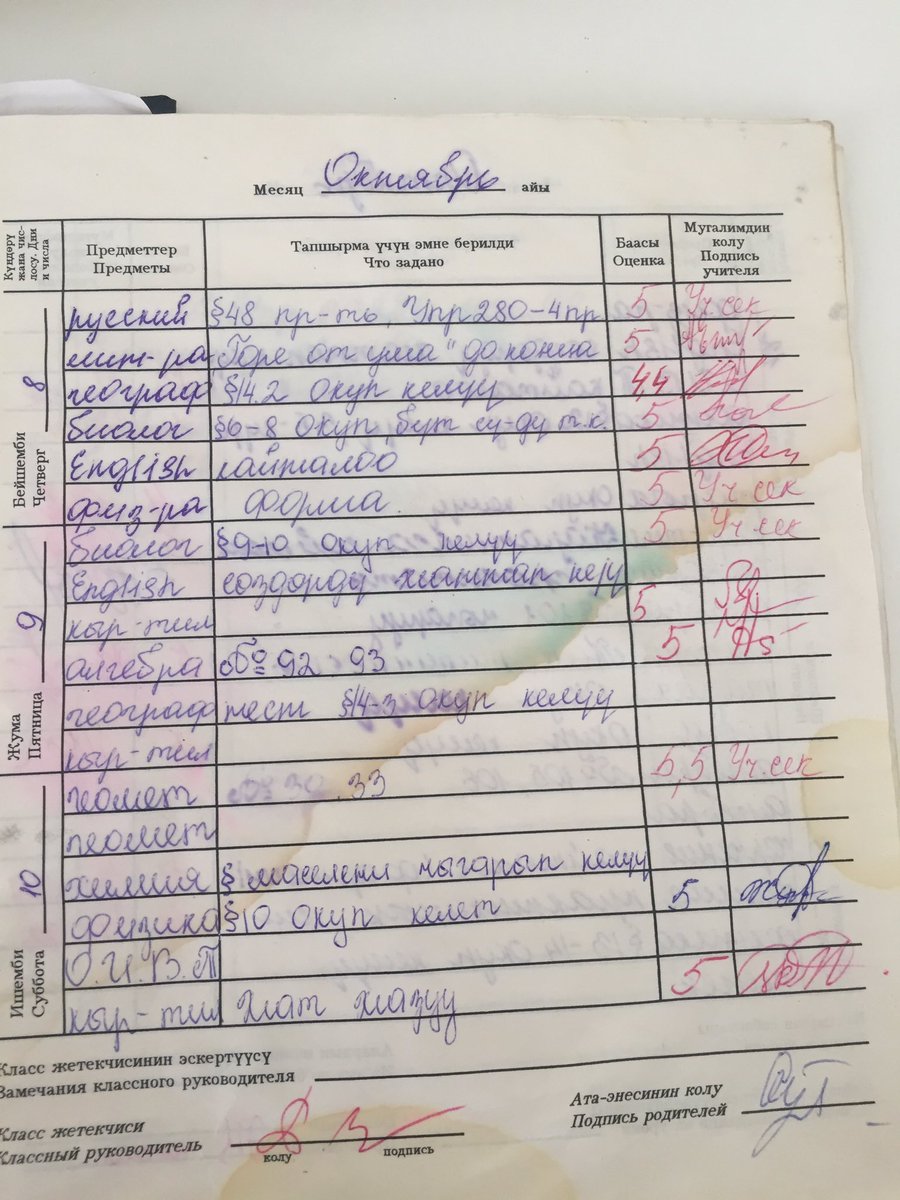 Месяц Октябрь айы
Күндөрү жана числосу. Дни и числа
Предметтер
Предметы
Тапшырма үчүн эмне берилди
Что задано
Баасы
Оценка
Мугалимдин колу
Подпись учителя
Бейшемби
Четверг
8
русский §48 пр-ть, Упр 280-4пр 5 Уч сек
лит-ра "Горе от ума" до конца 5
географ §14.2 окуп келуу 4,4
биолог §6-8 окуп 5
English кайталоо 5
физ-ра форма. 5 Уч сек
Жума
Пятница
9
биолог §9-10 окуп келуу 5 Уч сек
English создорду жаттап келу
кыр-тил 5
алгебра № 92 93 5
географ тест §14-3 окуп келуу
кыр-тил
Ишемби
Суббота
10
геомет № 30, 33 5,5 Уч.сек
геомет
химия § маселени чыгарып келуу
физика §10 окуп келет 5
О.И.В.Т
кыр-тил жат жазуу 5
Класс жетекчисинин эскертүүсү
Замечания классного руководителя
Класс жетекчиси
Классный руководитель
колу подпись
Ата-энесинин колу
Подпись родителей